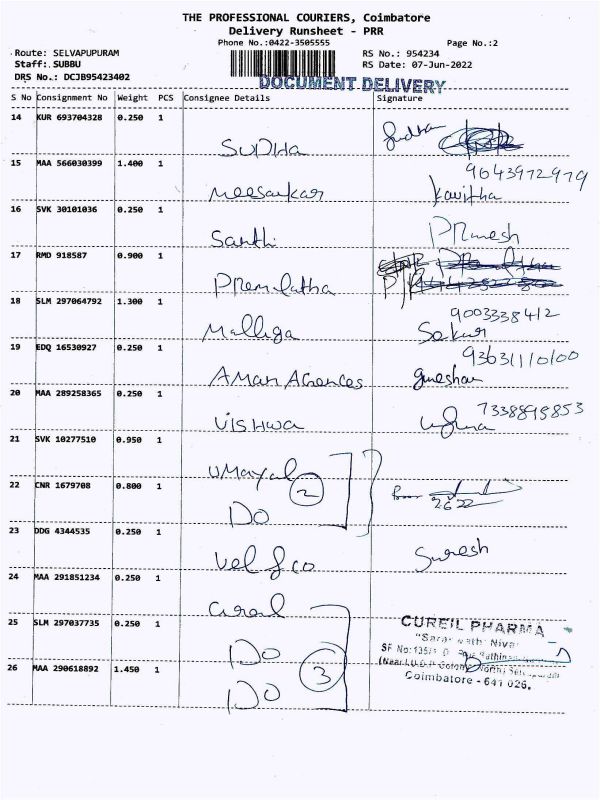 THE PROFESSIONAL COURIERS, Coimbatore
Delivery Runsheet - PRR
Phone No.:0422-3505555
Page No.:2
Route: SELVAPUPURAM
RS No.: 954234
Staff: SUBBU
RS Date: 07-Jun-2022
DRS No.: DCJB95423402
DOCUMENT DELIVERY
S No Consignment No Weight PCS Consignee Details Signature
14 KUR 693704328 0.250 1
SUDHA Sudha
15 MAA 566030399 1.400 1 9643972979
Meesankar Kavitha
16 SVK 30101036 0.250 1
Santhi PRmesh
17 RMD 918587 0.900 1
Premlatha
18 SLM 297064792 1.300 1 9003338412
Malliga Sekar
19 EDQ 16530927 0.250 1 93631110100
AMAN AGENCES gneshan
20 MAA 289258365 0.250 1 7338898853
VISHWA
21 SVK 10277510 0.950 1
UMayal
22 CNR 1679708 0.800 1 2
DO
23 DDG 4344535 0.250 1
Vel & co Suresh
24 MAA 291851234 0.250 1
Cureil
25 SLM 297037735 0.250 1 CUREIL PHARMA
DO
26 MAA 290618892 1.450 1 3
DO
Coimbatore - 641 026.